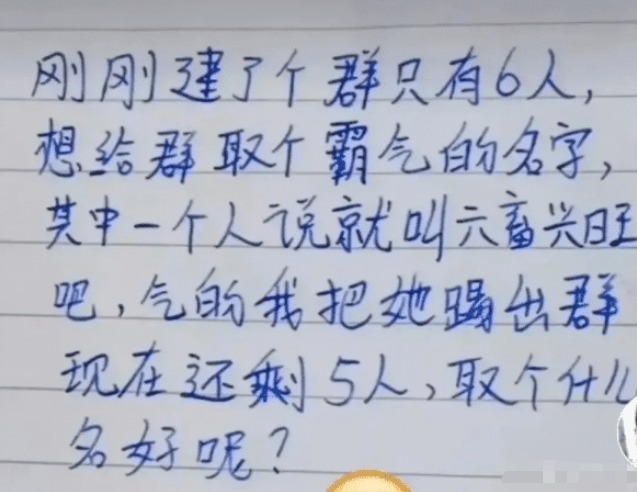 刚刚建了个群只有6人，
想给群取个霸气的名字，
其中一个人说就叫六畜兴旺
吧，气的我把她踢出群
现在还剩5人，取个什么
名好呢？